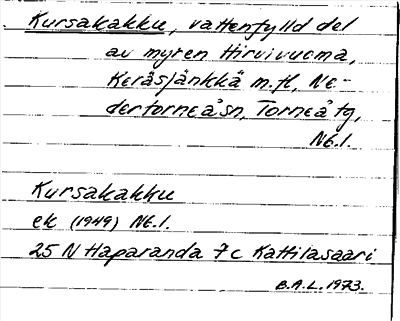 Kursakakku, vattenfylld del
av myren Hirvivuoma,
Keräsjänkkä m.fl., Ne-
dertorneå sn, Torneå tg,
Nb.l.
Kursakakku
ek (1949) Nb.l.
25 N Haparanda 7c Kattilasaari
B.A.L. 1973.